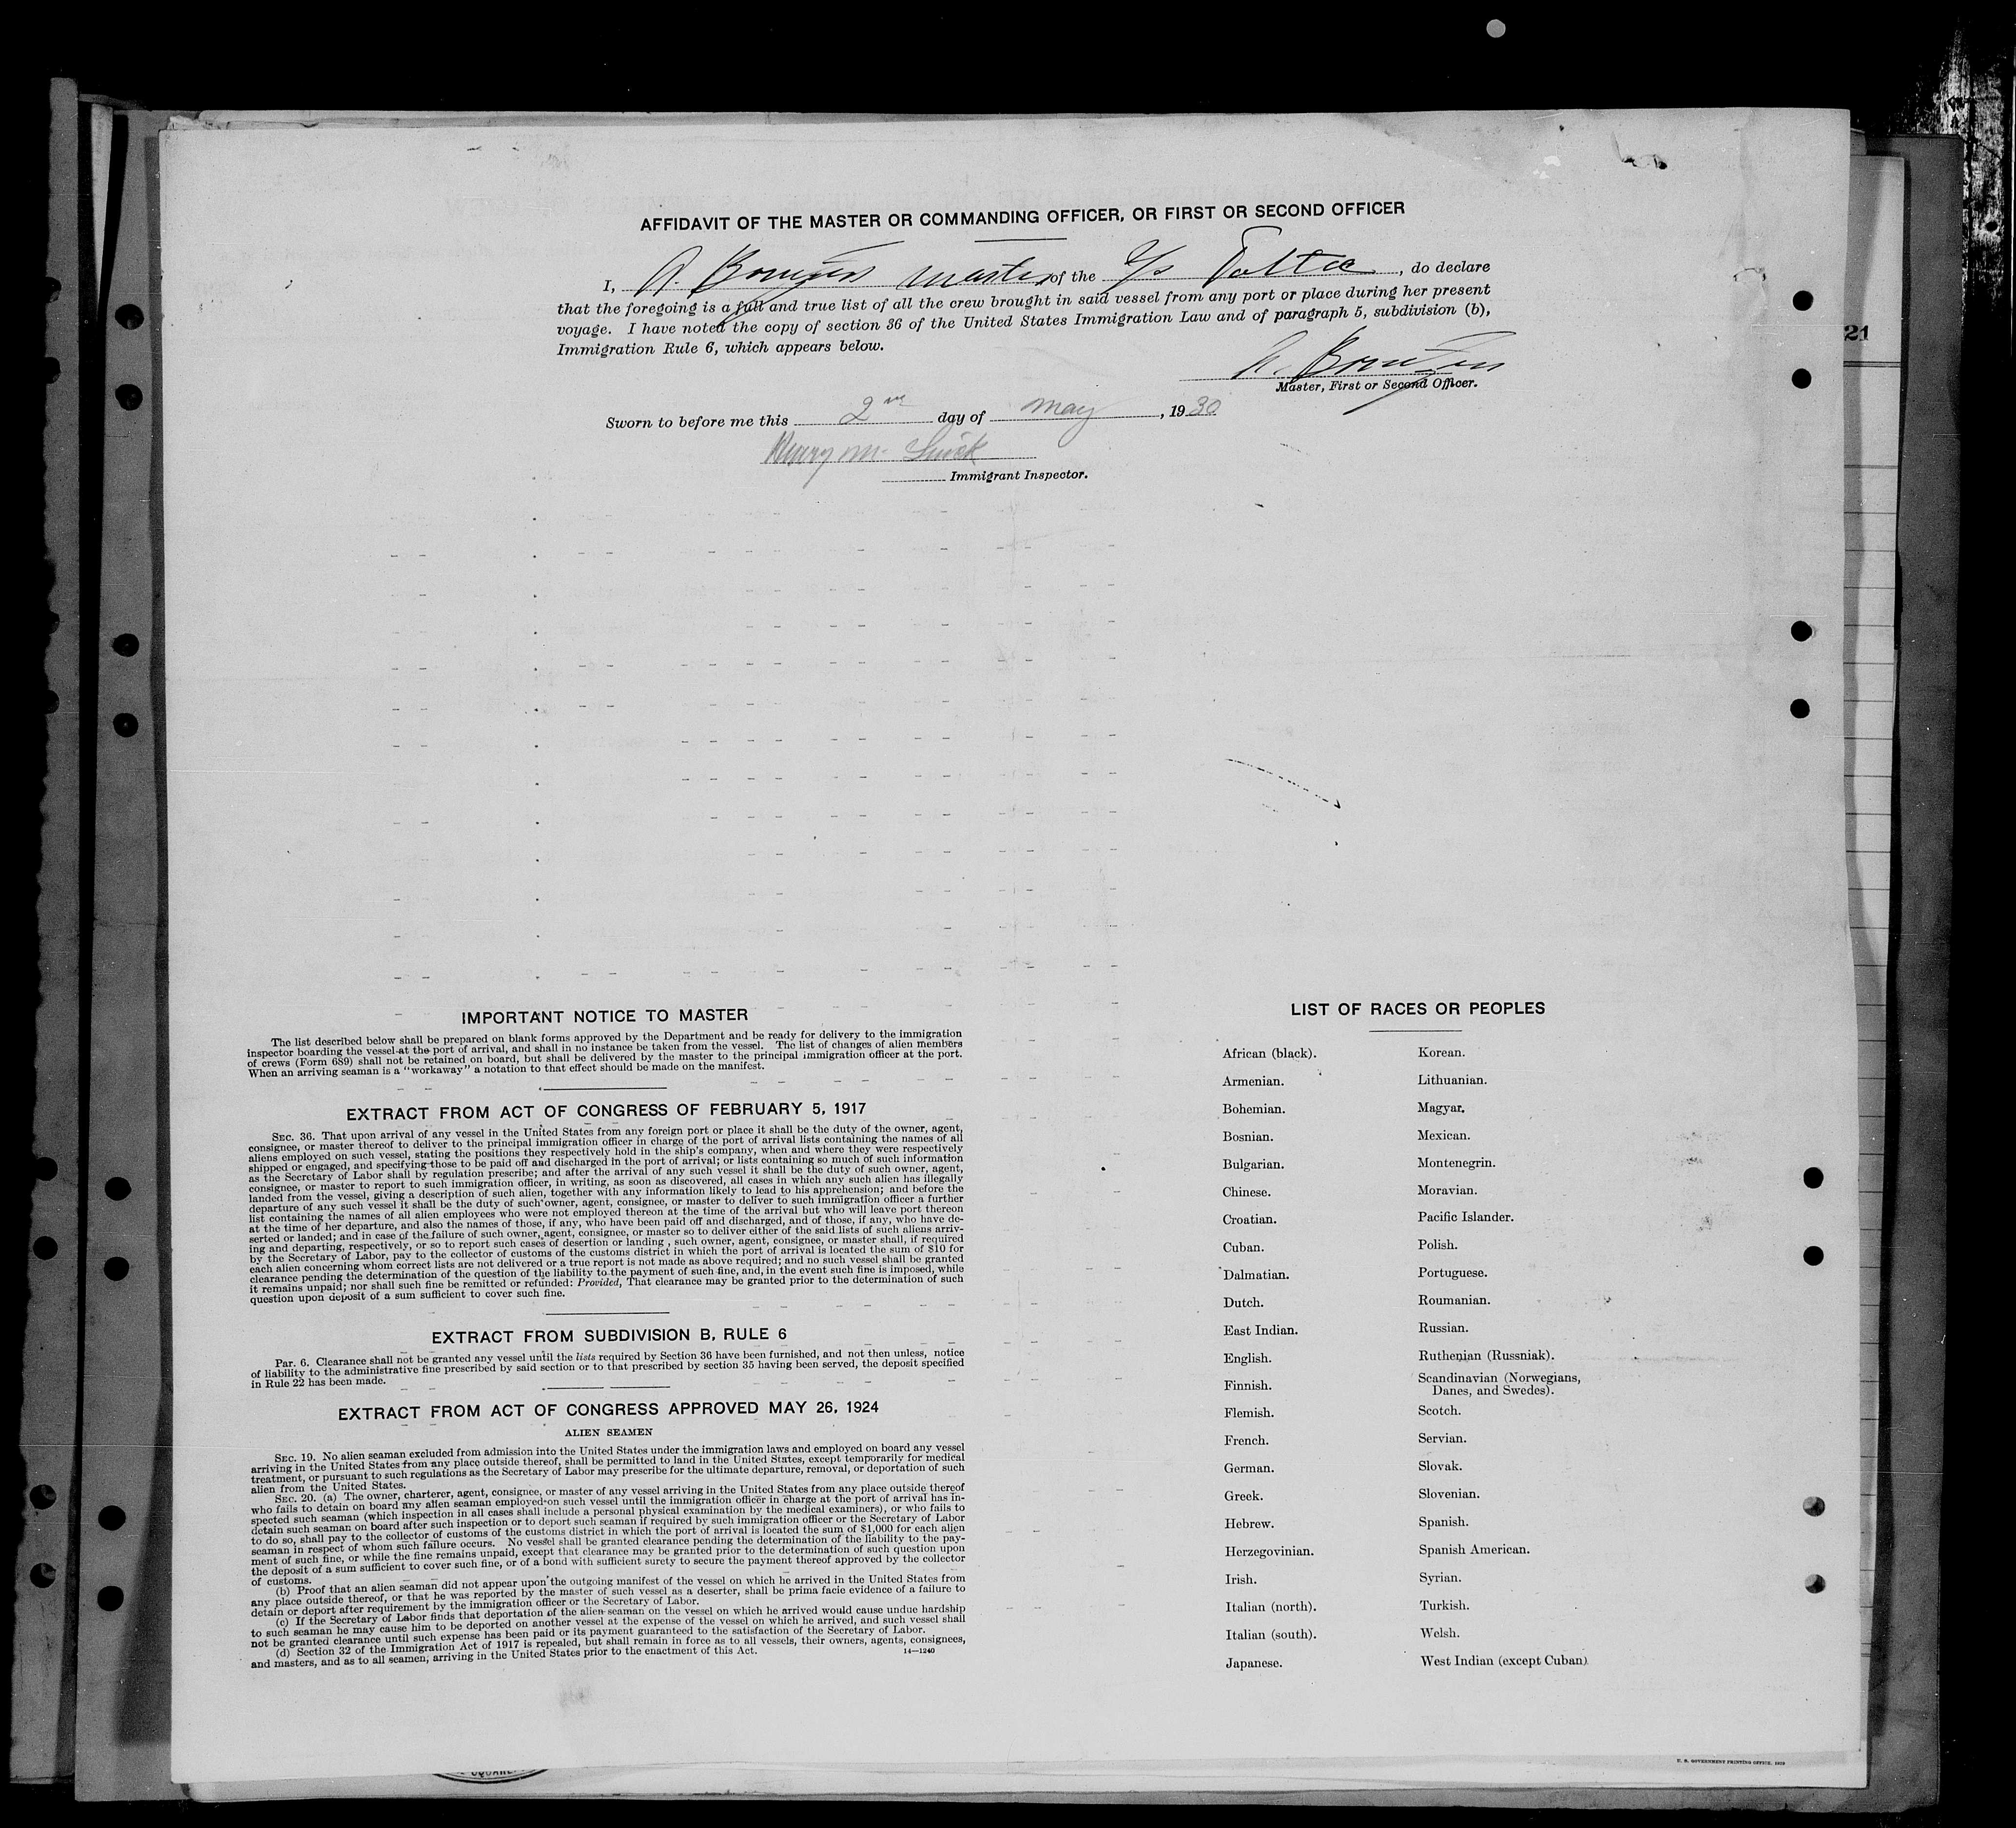 21
AFFIDAVIT OF THE MASTER OR COMMANDING OFFICER, OR FIRST OR SECOND OFFICER
I, A. master of the S/s , do declare
that the foregoing is a full and true list of all the crew brought in said vessel from any port or place during her present
voyage. I have noted the copy of section 36 of the United States Immigration Law and of paragraph 5, subdivision (b),
Immigration Rule 6, which appears below.
A.
Master, First or Second Officer.
Sworn to before me this 2nd day of May, 1930
Immigrant Inspector.
IMPORTANT NOTICE TO MASTER
The list described below shall be prepared on blank forms approved by the Department and be ready for delivery to the immigration
inspector boarding the vessel at the port of arrival, and shall in no instance be taken from the vessel. The list of changes of alien members
of crews (Form 689) shall not be retained on board, but shall be delivered by the master to the principal immigration officer at the port.
When an arriving seaman is a "workaway" a notation to that effect should be made on the manifest.
EXTRACT FROM ACT OF CONGRESS OF FEBRUARY 5, 1917
SEC. 36. That upon arrival of any vessel in the United States from any foreign port or place it shall be the duty of the owner, agent,
consignee, or master thereof to deliver to the principal immigration officer in charge of the port of arrival lists containing the names of all
aliens employed on such vessel, stating the positions they respectively hold in the ship's company, when and where they were respectively
shipped or engaged, and specifying those to be paid off and discharged in the port of arrival; or lists containing so much of such information
as the Secretary of Labor shall by regulation prescribe; and after the arrival of any such vessel it shall be the duty of such owner, agent,
consignee, or master to report to such immigration officer, in writing, as soon as discovered, all cases in which any such alien has illegally
landed from the vessel, giving a description of such alien, together with any information likely to lead to his apprehension; and before the
departure of any such vessel it shall be the duty of such owner, agent, consignee, or master to deliver to such immigration officer a further
list containing the names of all alien employees who were not employed thereon at the time of the arrival but who will leave port thereon
at the time of her departure, and also the names of those, if any, who have been paid off and discharged, and of those, if any, who have de-
serted or landed; and in case of the failure of such owner, agent, consignee, or master so to deliver either of the said lists of such aliens arriv-
ing and departing, respectively, or so to report such cases of desertion or landing , such owner, agent, consignee, or master shall, if required
by the Secretary of Labor, pay to the collector of customs of the customs district in which the port of arrival is located the sum of $10 for
each alien concerning whom correct lists are not delivered or a true report is not made as above required; and no such vessel shall be granted
clearance pending the determination of the question of the liability to the payment of such fine, and, in the event such fine is imposed, while
it remains unpaid; nor shall such fine be remitted or refunded: Provided, That clearance may be granted prior to the determination of such
question upon deposit of a sum sufficient to cover such fine.
EXTRACT FROM SUBDIVISION B, RULE 6
Par. 6. Clearance shall not be granted any vessel until the lists required by Section 36 have been furnished, and not then unless, notice
of liability to the administrative fine prescribed by said section or to that prescribed by section 35 having been served, the deposit specified
in Rule 22 has been made.
EXTRACT FROM ACT OF CONGRESS APPROVED MAY 26, 1924
ALIEN SEAMEN
SEC. 19. No alien seaman excluded from admission into the United States under the immigration laws and employed on board any vessel
arriving in the United States from any place outside thereof, shall be permitted to land in the United States, except temporarily for medical
treatment, or pursuant to such regulations as the Secretary of Labor may prescribe for the ultimate departure, removal, or deportation of such
alien from the United States.
SEC. 20. (a) The owner, charterer, agent, consignee, or master of any vessel arriving in the United States from any place outside thereof
who fails to detain on board any alien seaman employed on such vessel until the immigration officer in charge at the port of arrival has in-
spected such seaman (which inspection in all cases shall include a personal physical examination by the medical examiners), or who fails to
detain such seaman on board after such inspection or to deport such seaman if required by such immigration officer or the Secretary of Labor
to do so, shall pay to the collector of customs of the customs district in which the port of arrival is located the sum of $1,000 for each alien
seaman in respect of whom such failure occurs. No vessel shall be granted clearance pending the determination of the liability to the pay-
ment of such fine, or while the fine remains unpaid, except that clearance may be granted prior to the determination of such question upon
the deposit of a sum sufficient to cover such fine, or of a bond with sufficient surety to secure the payment thereof approved by the collector
of customs.
(b) Proof that an alien seaman did not appear upon the outgoing manifest of the vessel on which he arrived in the United States from
any place outside thereof, or that he was reported by the master of such vessel as a deserter, shall be prima facie evidence of a failure to
detain or deport after requirement by the immigration officer or the Secretary of Labor.
(c) If the Secretary of Labor finds that deportation of the alien seaman on the vessel on which he arrived would cause undue hardship
to such seaman he may cause him to be deported on another vessel at the expense of the vessel on which he arrived, and such vessel shall
not be granted clearance until such expense has been paid or its payment guaranteed to the satisfaction of the Secretary of Labor.
(d) Section 32 of the Immigration Act of 1917 is repealed, but shall remain in force as to all vessels, their owners, agents, consignees,
and masters, and as to all seamen, arriving in the United States prior to the enactment of this Act.
14—1240
LIST OF RACES OR PEOPLES
African (black).
Armenian.
Bohemian.
Bosnian.
Bulgarian.
Chinese.
Croatian.
Cuban.
Dalmatian.
Dutch.
East Indian.
English.
Finnish.
Flemish.
French.
German.
Greek.
Hebrew.
Herzegovinian.
Irish.
Italian (north).
Italian (south).
Japanese.
Korean.
Lithuanian.
Magyar.
Mexican.
Montenegrin.
Moravian.
Pacific Islander.
Polish.
Portuguese.
Roumanian.
Russian.
Ruthenian (Russniak).
Scandinavian (Norwegians,
Danes, and Swedes).
Scotch.
Servian.
Slovak.
Slovenian.
Spanish.
Spanish American.
Syrian.
Turkish.
Welsh.
West Indian (except Cuban)
U. S. GOVERNMENT PRINTING OFFICE, 1929